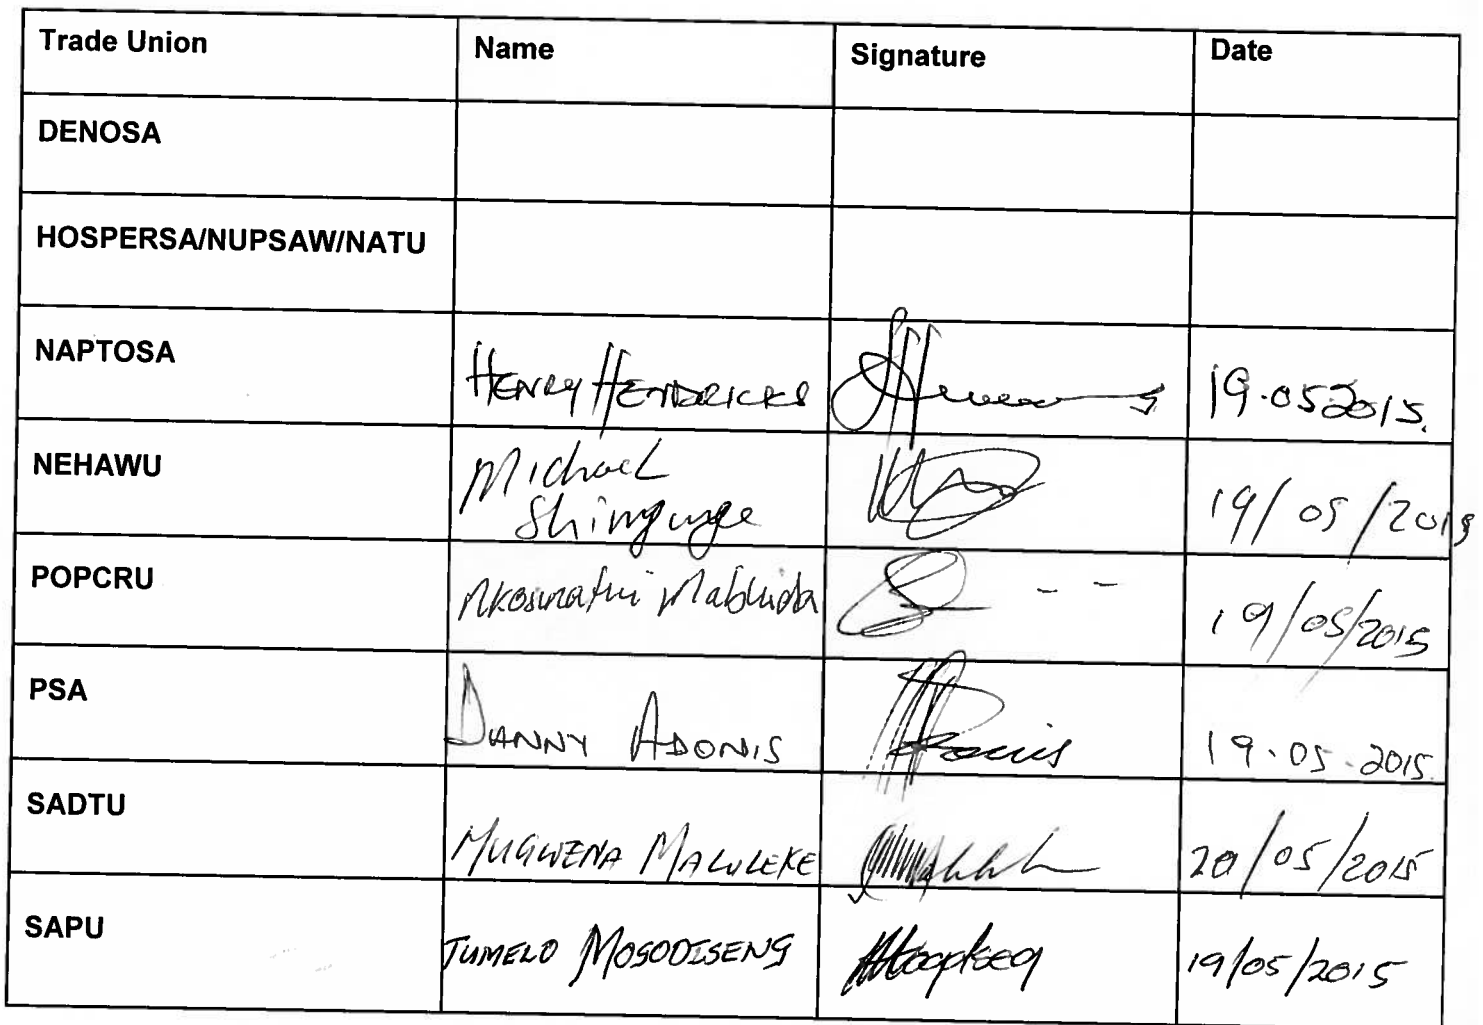 Trade Union Name Signature Date
DENOSA
HOSPERSA/NUPSAW/NATU
NAPTOSA HENRY HENDRICKS 19.05 2015.
NEHAWU Michael
Shingange 19/05/2015
POPCRU Nkosinathi Mabhida 19/05/2015
PSA DANNY ADONIS 19.05.2015
SADTU MUGWENA MALULEKE 20/05/2015
SAPU TUMELO MOGODISENG 19/05/2015